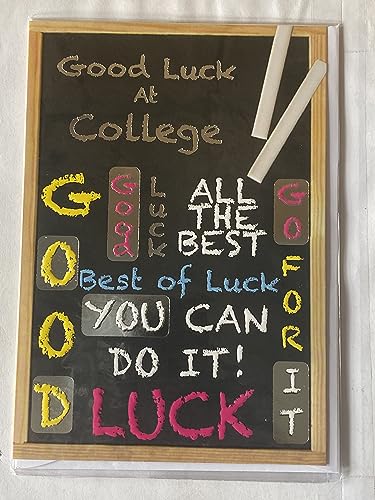 Good Luck
At
College
GOOD
Good
Luck
ALL
THE
BEST
GO FOR IT
Best of Luck
YOU CAN
DO IT!
LUCK